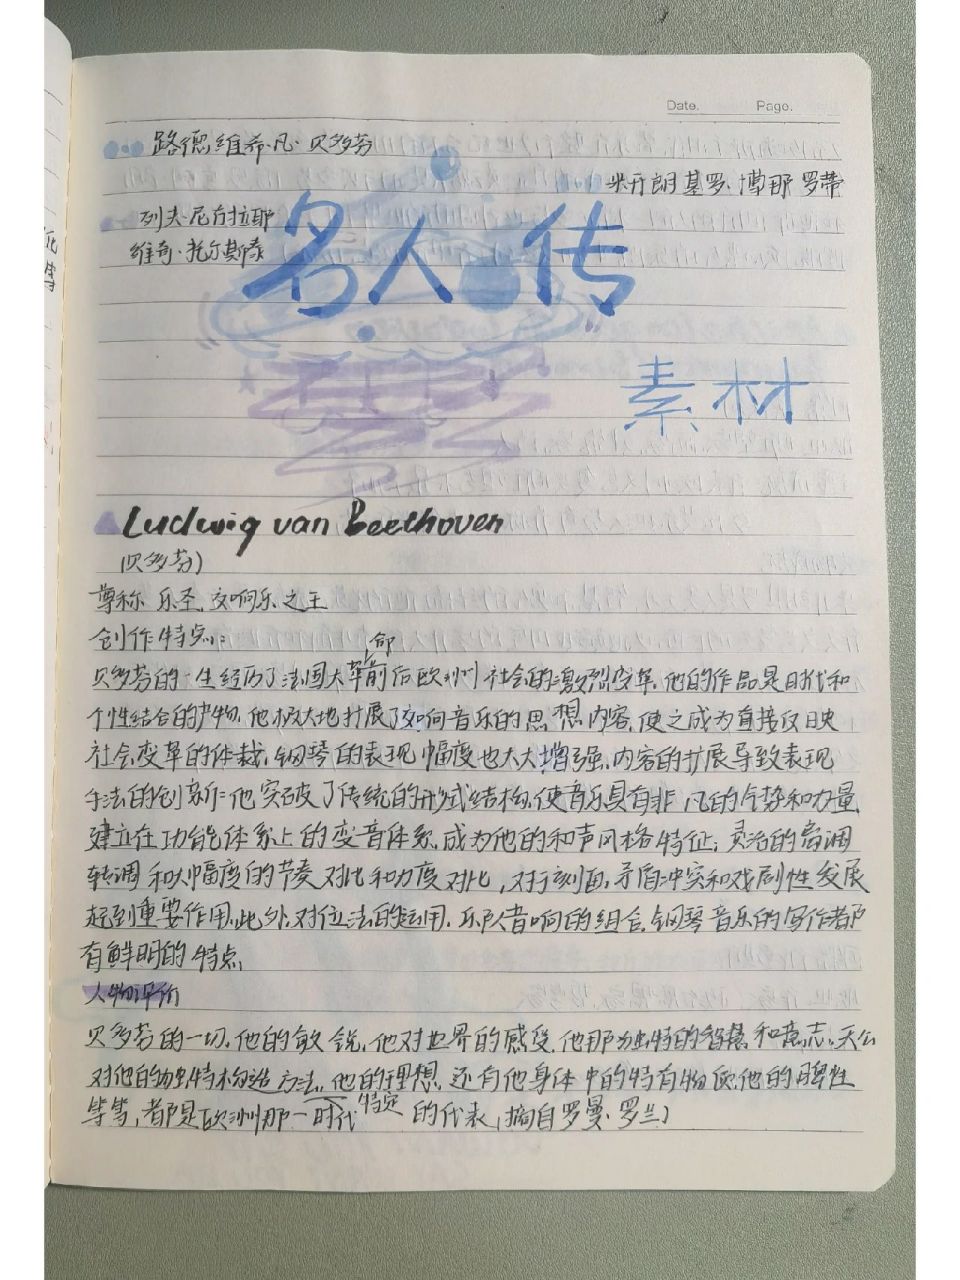 Date.
Page.
路德维希·凡·贝多芬
米开朗基罗·博那罗蒂
列夫·尼古拉耶
维奇·托尔斯泰
名人传
素材
Ludwig van Beethoven
(贝多芬)
尊称 乐圣、交响乐之王
创作特点:
贝多芬的一生经历了法国大革命前后欧洲社会的激烈变革,他的作品是时代和
个性结合的产物,他极大地扩展了如何音乐的思想内容,使之成为直接反映
社会变革的体裁,钢琴的表现幅度也大大增强,内容的扩展导致表现
手法的创新:他突破了传统的形式结构,使音乐具有非凡的气势和力量,
建立在功能体系上的变音体系,成为他的和声风格特征;灵活的离调
转调和大幅度的节奏对比和力度对比,对于刻画矛盾冲突和戏剧性发展
起到重要作用,此外,对位法的运用,乐队音响的组合,钢琴音乐的写作都
有鲜明的特点,
人物评价
贝多芬的一切,他的敏锐,他对世界的感受,他那独特的智慧和意志,天公
对他的独特构造方法,他的理想,还有他身体中的特有物质,他的脾性
等等,都是欧洲那一时代特定的代表,摘自罗曼·罗兰)
化
等